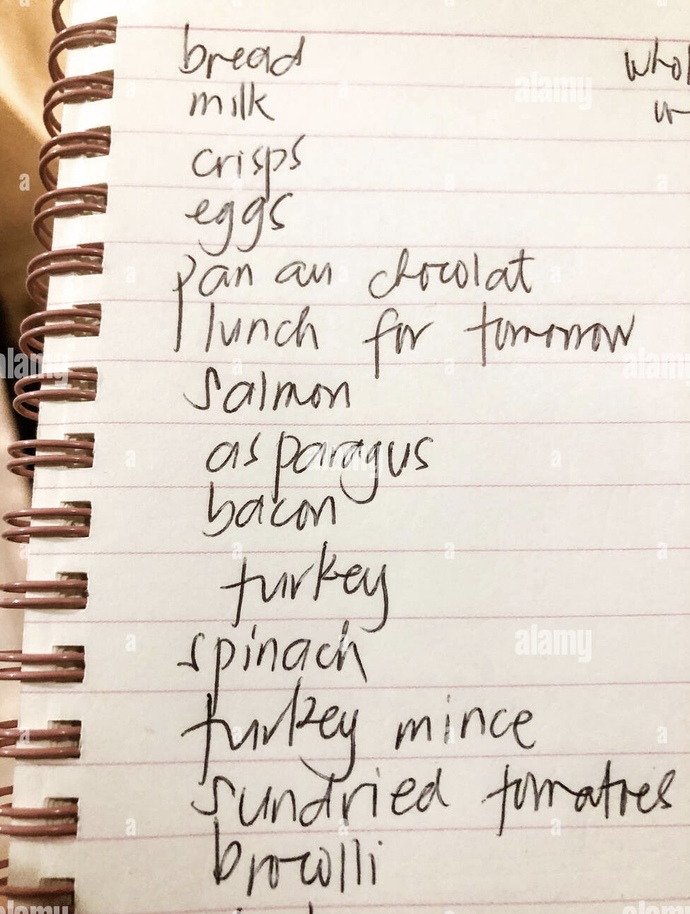 bread
milk
crisps
eggs
pan au chocolat
lunch for tomorrow
salmon
asparagus
bacon
turkey
spinach
turkey mince
sundried tomatoes
brocolli